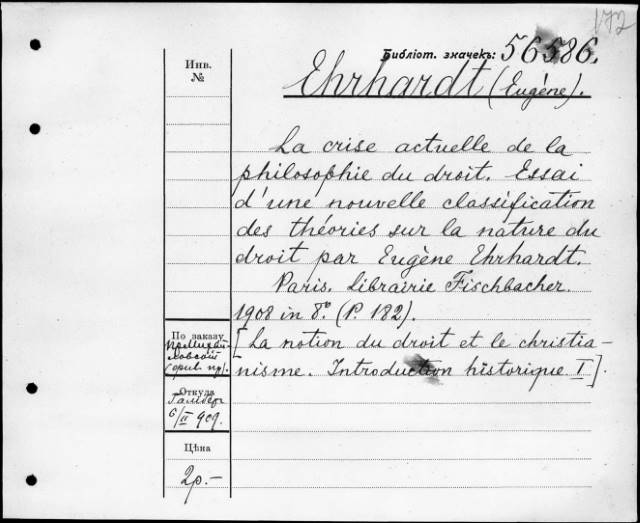 172
Библіот. значекъ: 56586.
Инв.
№
Ehrhardt (Eugène).
La crise actuelle de la
philosophie du droit. Essai
d'une nouvelle classification
des théories sur la nature du
droit par Eugène Ehrhardt.
Paris. Librairie Fischbacher.
1908 in 8° (P. 182).
[La notion du droit et le christia-
nisme. Introduction historique I].
По заказу
Откуда
6/II 909.
Цѣна
2р.-